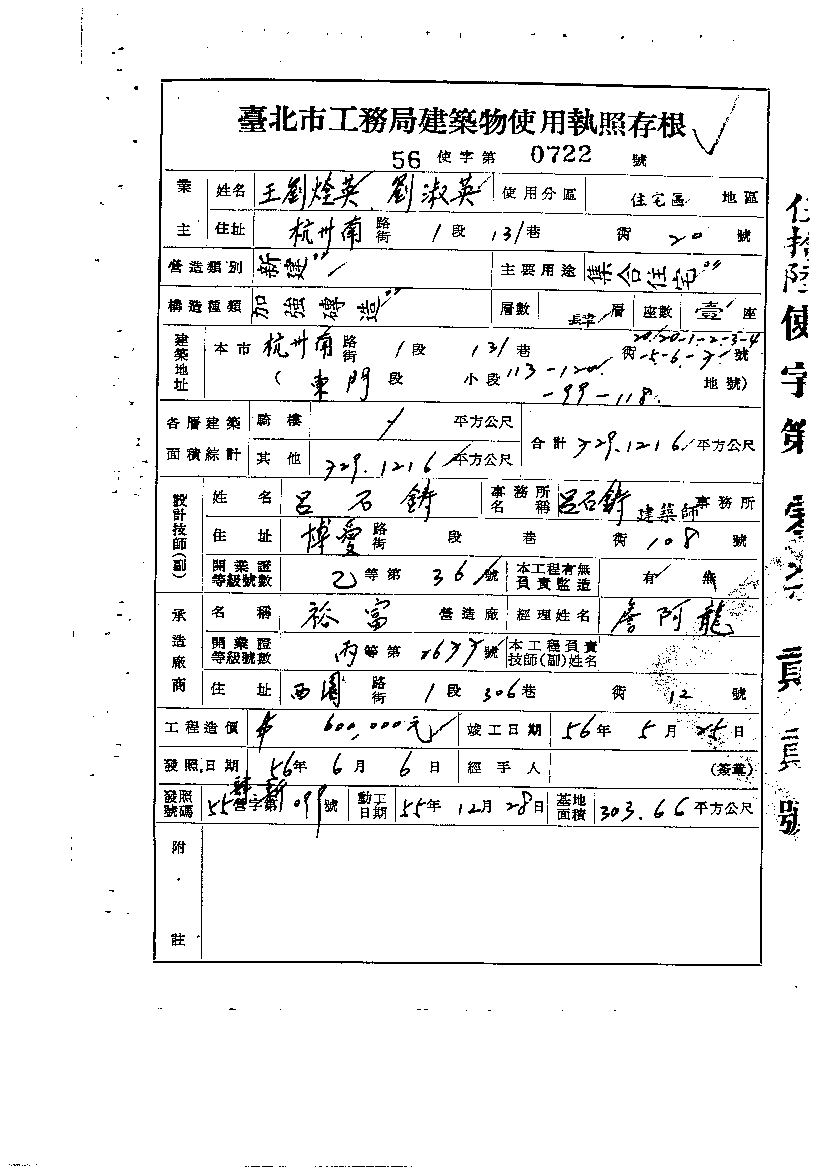 臺北市工務局建築物使用執照存根
56 使字第 0722 號
業主 姓名 王劉燈英 劉淑英 使用分區 住宅區 地區
住址 杭州南 路街 1 段 131 巷 街 20 號
營造類別 新建 主要用途 集合住宅
構造種類 加強磚造 層數 層 座數 壹 座
建築地址 本市 杭州南 路街 1 段 131 巷 街 20.20-1-2-3-4 -5-6-7 號
(東門 段 小段 113-120 -99-118 地號)
各層建築面積綜計 騎樓 / 平方公尺 合計 729.1216 平方公尺
其他 729.1216 平方公尺
設計技師(副) 姓名 呂石鑄 事務所名稱 呂石鑄建築師 事務所
住址 博愛 路街 段 巷 街 108 號
開業證等級號數 乙 等第 361 號 本工程有無負責監造 有 無
承造廠商 名稱 裕富 營造廠 經理姓名 詹阿龍
開業證等級號數 丙 等第 號 本工程負責技師(副)姓名
住址 西園 路街 1 段 306 巷 街 12 號
工程造價 600,000元 竣工日期 56 年 5 月 25 日
發照日期 56 年 6 月 6 日 經手人 (簽章)
發照號碼 55 營字第 099 號 動工日期 55 年 12 月 28 日 基地面積 303.66 平方公尺
附註
伍拾陸使字第零柒貳貳號